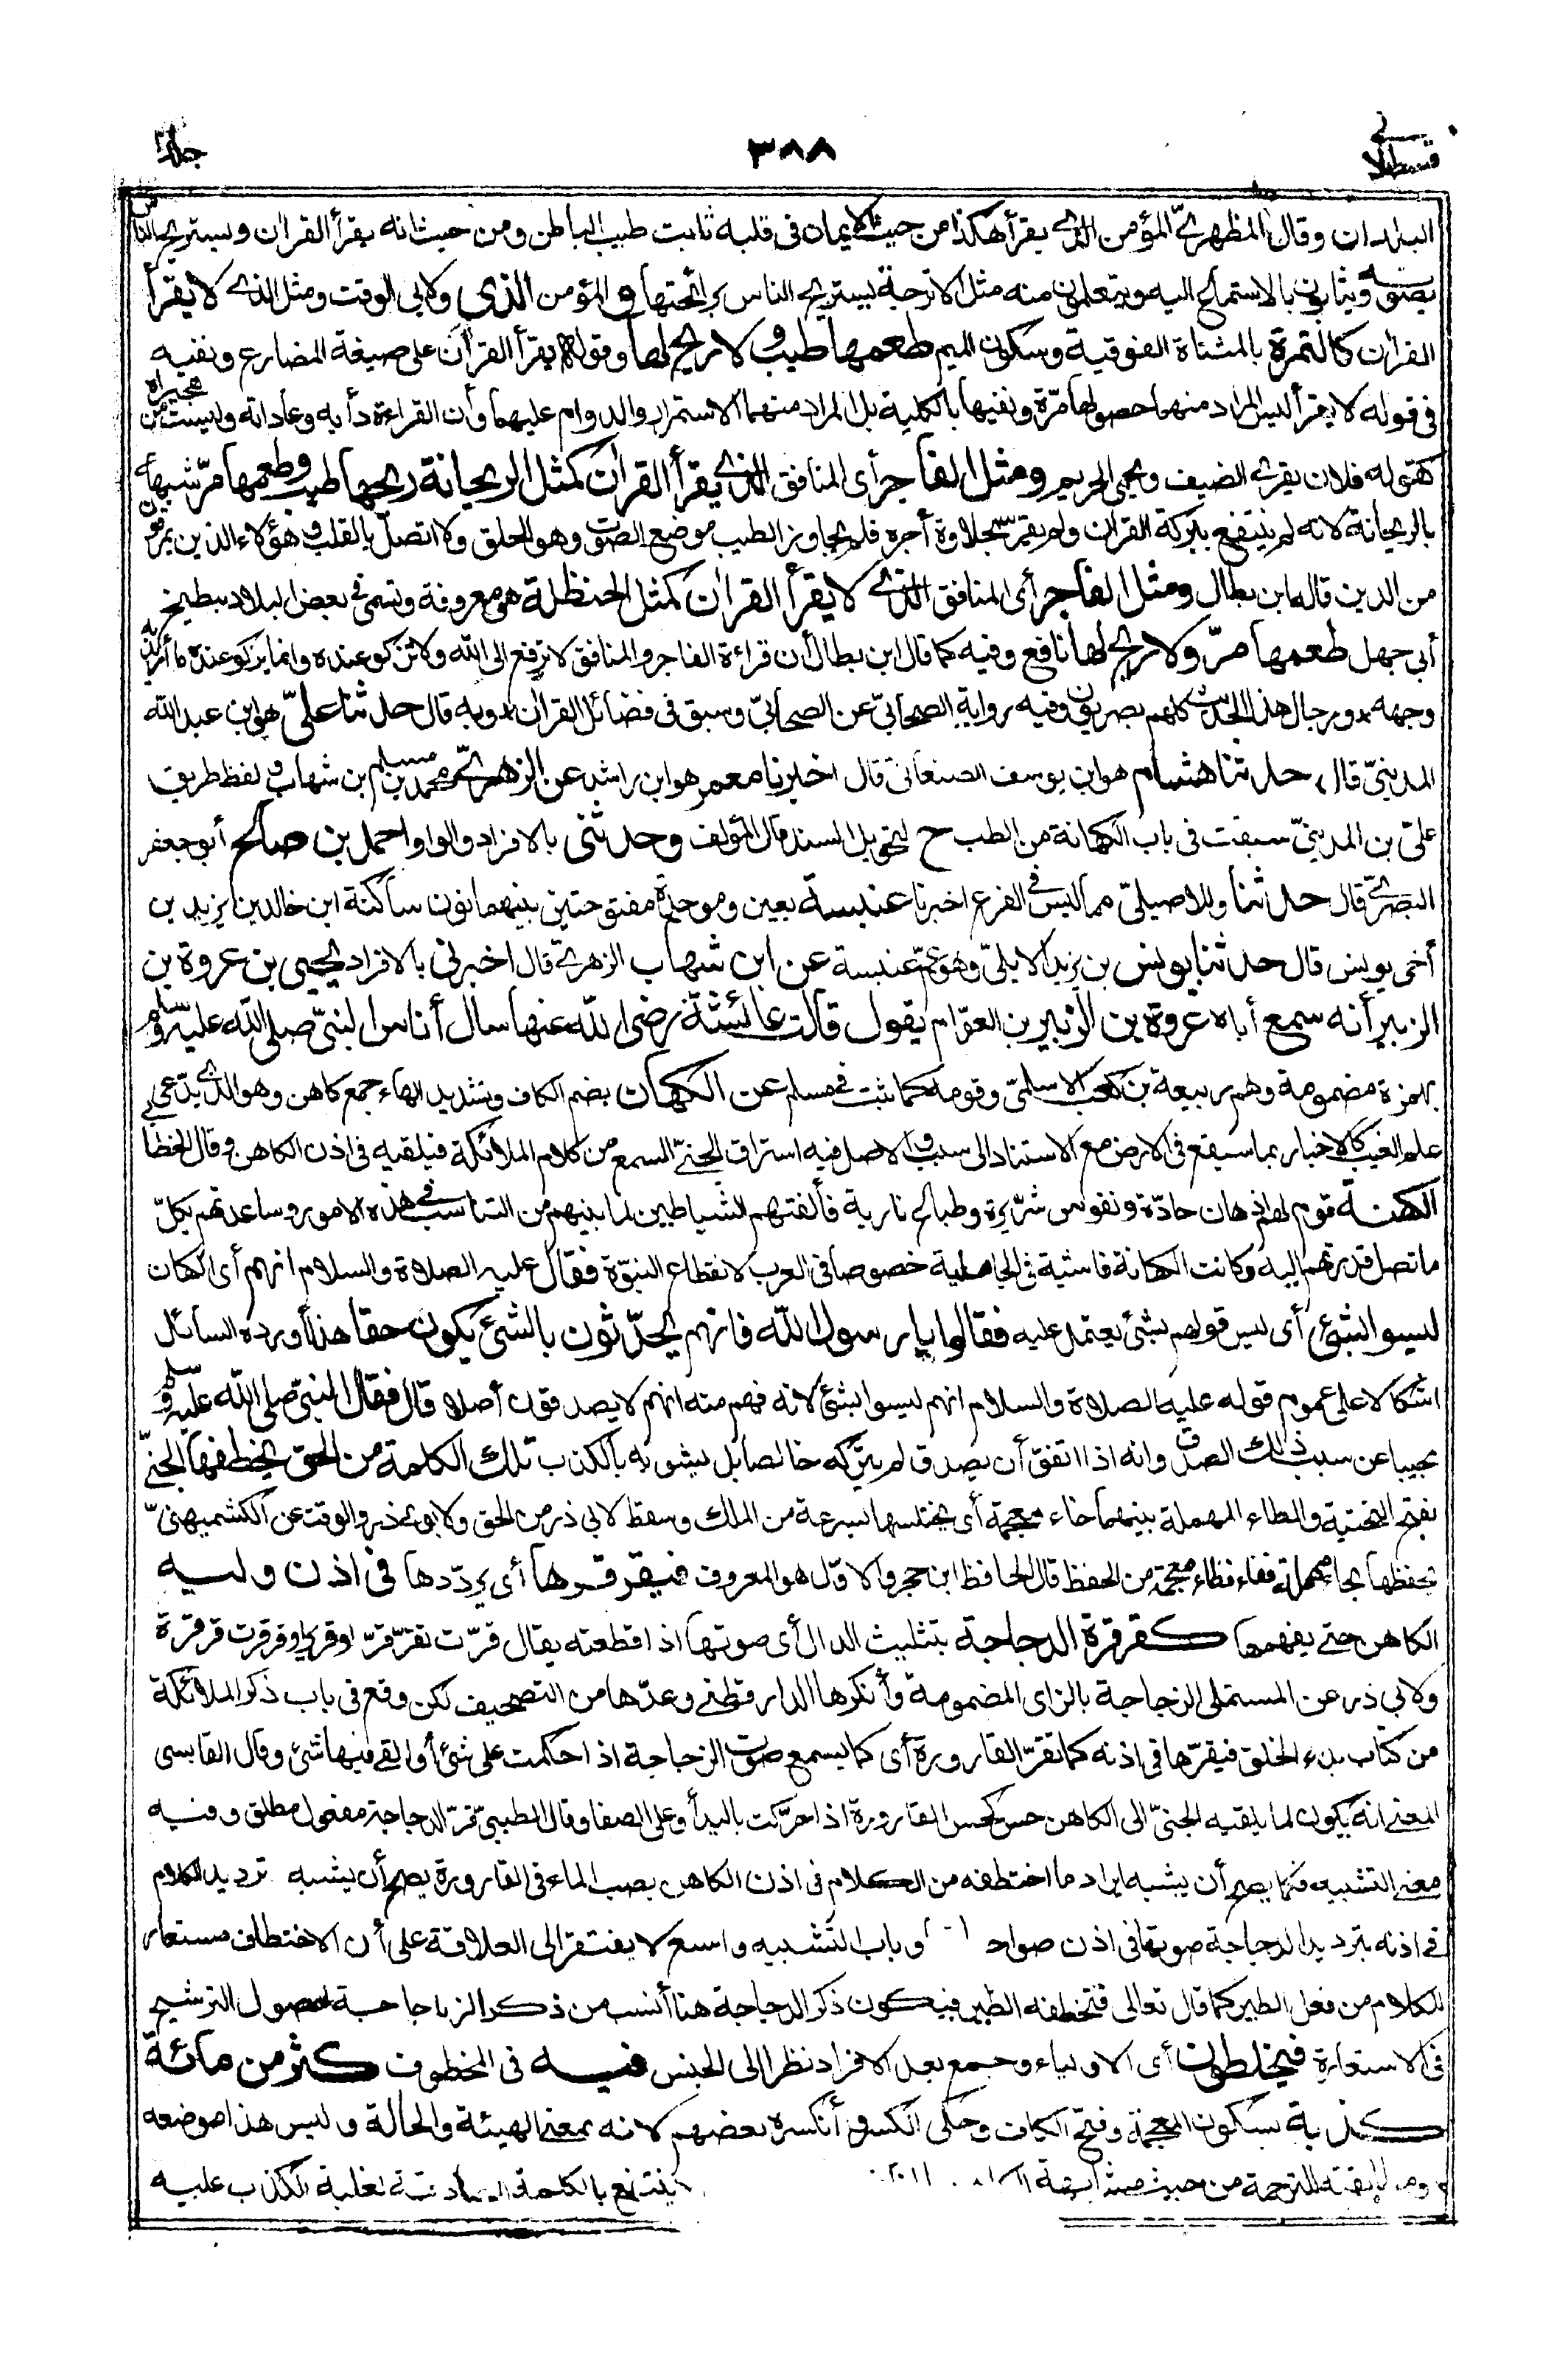 قسطلاني
٣٨٨
جلد
البلدان وقال المظهري المؤمن الذي يقرأ هكذا من حيث الايمان في قلبه ثابت طيب الباطن ومن حيث انه يقرأ القرآن ويستريح الناس
بصوته ويثابون بالاستماع اليه ويتعلمون منه مثل الاترجة يستريح الناس برائحتها والمؤمن الذي ولابي الوقت ومثل الذي لا يقرأ
القرآن كالتمرة بالمثناة الفوقية وسكون الميم طعمها طيب ولا ريح لها وقوله يقرأ القرآن على صيغة المضارع ونفيه
في قوله لا يقرأ ليس المراد منهما حصولها مرّة ونفيها بالكلية بل المراد منهما الاستمرار والدوام عليهما وأن القراءة دأبه وعادته وليست من هجيراه
كقوله فلان يقري الضيف ويحمي الحريم ومثل الفاجر أى المنافق الذي يقرأ القرآن كمثل الريحانة ريحها طيب وطعمها مرّ شبهه
بالريحانة لانه لم ينتفع ببركة القرآن ولم يفز بحلاوة أجره فلم يجاوز الطيب موضع الصوت وهو الحلق ولا اتصل بالقلب وهؤلاء الذين يمرقون
من الدين قاله ابن بطال ومثل الفاجر أى المنافق الذي لا يقرأ القرآن كمثل الحنظلة هي معروفة وتسمى في بعض البلاد ببطيخ
أبي جهل طعمها مرّ ولا ريح لها نافع وفيه كما قال ابن بطال أن قراءة الفاجر والمنافق لا ترفع الى الله ولا تزكو عنده وانما يزكو عنده ما أريد به
وجهه ورجال هذا الحديث كلهم بصريون وفيه رواية الصحابيّ عن الصحابيّ وسبق في فضائل القرآن وبه قال حدثنا عليّ هو ابن عبد الله
المدينيّ قال حدثنا هشام هو ابن يوسف الصنعاني قال اخبرنا معمر هو ابن راشد عن الزهري محمد بن مسلم بن شهاب ولفظ طريق
عليّ بن المدينيّ سبقت في باب الكهانة من الطب ح لتحويل السند قال المؤلف وحدثني بالافراد والواو احمد بن صالح أبو جعفر
البصريّ قال حدثنا وللاصيليّ مما ليس في الفرع اخبرنا عنبسة بعين وموحدة مفتوحتين بينهما نون ساكنة ابن خالد بن يزيد بن
أخي يونس قال حدثنا يونس بن يزيد الايليّ وهو عمّ عنبسة عن ابن شهاب الزهري قال اخبرني بالافراد يحيى بن عروة بن
الزبير أنه سمع أباه عروة بن الزبير بن العوّام يقول قالت عائشة رضي الله عنها سأل أناس النبيّ صلى الله عليه وسلم
بهمزة مضمومة وهم ربيعة بن كعب الاسلميّ وقومه كما ثبت في مسلم عن الكهان بضم الكاف وتشديد الهاء جمع كاهن وهو الذي يدّعي
علم الغيب كالاخبار بما سيقع في الارض مع الاستناد الى سبب والاصل فيه استراق الجنيّ السمع من كلام الملائكة فيلقيه في اذن الكاهن وقال الخطابي
الكهنة قوم لهم اذهان حادّة ونفوس شرّيرة وطباع نارية فألفتهم الشياطين لما بينهم من التناسب في هذه الامور وساعدتهم بكلّ
ما تصل قدرتهم اليه وكانت الكهانة فاشية في الجاهلية خصوصا في العرب لانقطاع النبوّة فقال عليه الصلاة والسلام انهم أى الكهان
ليسوا بشيء أى ليس قولهم بشئ يعتمد عليه فقالوا يا رسول الله فانهم يحدّثون بالشئ يكون حقا هذا أورده السائل
اشكالا على عموم قوله عليه الصلاة والسلام انهم ليسوا بشئ لانه فهم منه انهم لا يصدقون أصلا قال فقال النبيّ صلى الله عليه وسلم
مجيبا عن سبب ذلك الصدق وانه اذا اتفق أن يصدق لم يتركه خالصا بل يشوبه بالكذب تلك الكلمة من الحق يخطفها الجنيّ
بفتح التحتية والطاء المهملة بينهما خاء معجمة أى يختلسها بسرعة من الملك وسقط لابي ذر من الحق ولابوي ذر والوقت عن الكشميهنيّ
يحفظها بحاء مهملة ففاء فظاء معجمة من الحفظ قال الحافظ ابن حجر والاوّل هو المعروف فيقرقرها أى يردّدها في اذن وليه
الكاهن حتى يفهمها كقرقرة الدجاجة بتثليث الدال أى صوتها اذا قطعته يقال قرّت تقرّ قرّا وقريرا وقرقرت قرقرة
ولابي ذر عن المستملي الزجاجة بالزاى المضمومة وأنكرها الدارقطني وعدّها من التصحيف لكن وقع في باب ذكر الملائكة
من كتاب بدء الخلق فيقرّها في اذنه كما تقرّ القارورة أى كما يسمع صوت الزجاجة اذا حكمت على شئ أو ألقي فيها شئ وقال القابسي
المعنى انه يكون لما يلقيه الجنيّ الى الكاهن حس كحس القارورة اذا حرّكت باليد أو على الصفا وقال الطيبيّ قرّ الدجاجة مفعول مطلق وفيه
معنى التشبيه فكما يصح أن يشبه ايراد ما اختطفه من الكلام في اذن الكاهن بصب الماء في القارورة يصح أن يشبه ترديد الكلام
في اذنه بترديد الدجاجة صوتها في اذن صواحبها وباب التشبيه واسع لا يفتقر الى العلاقة على أن الاختطاف مستعار
للكلام من فعل الطير كما قال تعالى فتخطفه الطير فيكون ذكر الدجاجة هنا أنسب من ذكر الزجاجة لحصول الترشيح
في الاستعارة فيخلطون أى الاولياء وجمع بعد الافراد نظرا الى الجنس فيه في المخطوف كثر من مائة
كذبة بسكون المعجمة وفتح الكاف وحكى الكسر وأنكره بعضهم لانه بمعنى الهيئة والحالة وليس هذا موضعه
ومطابقته للترجمة من حيث مشابهة ينتفع بالكلمة الصادقة لغلبة الكذب عليه